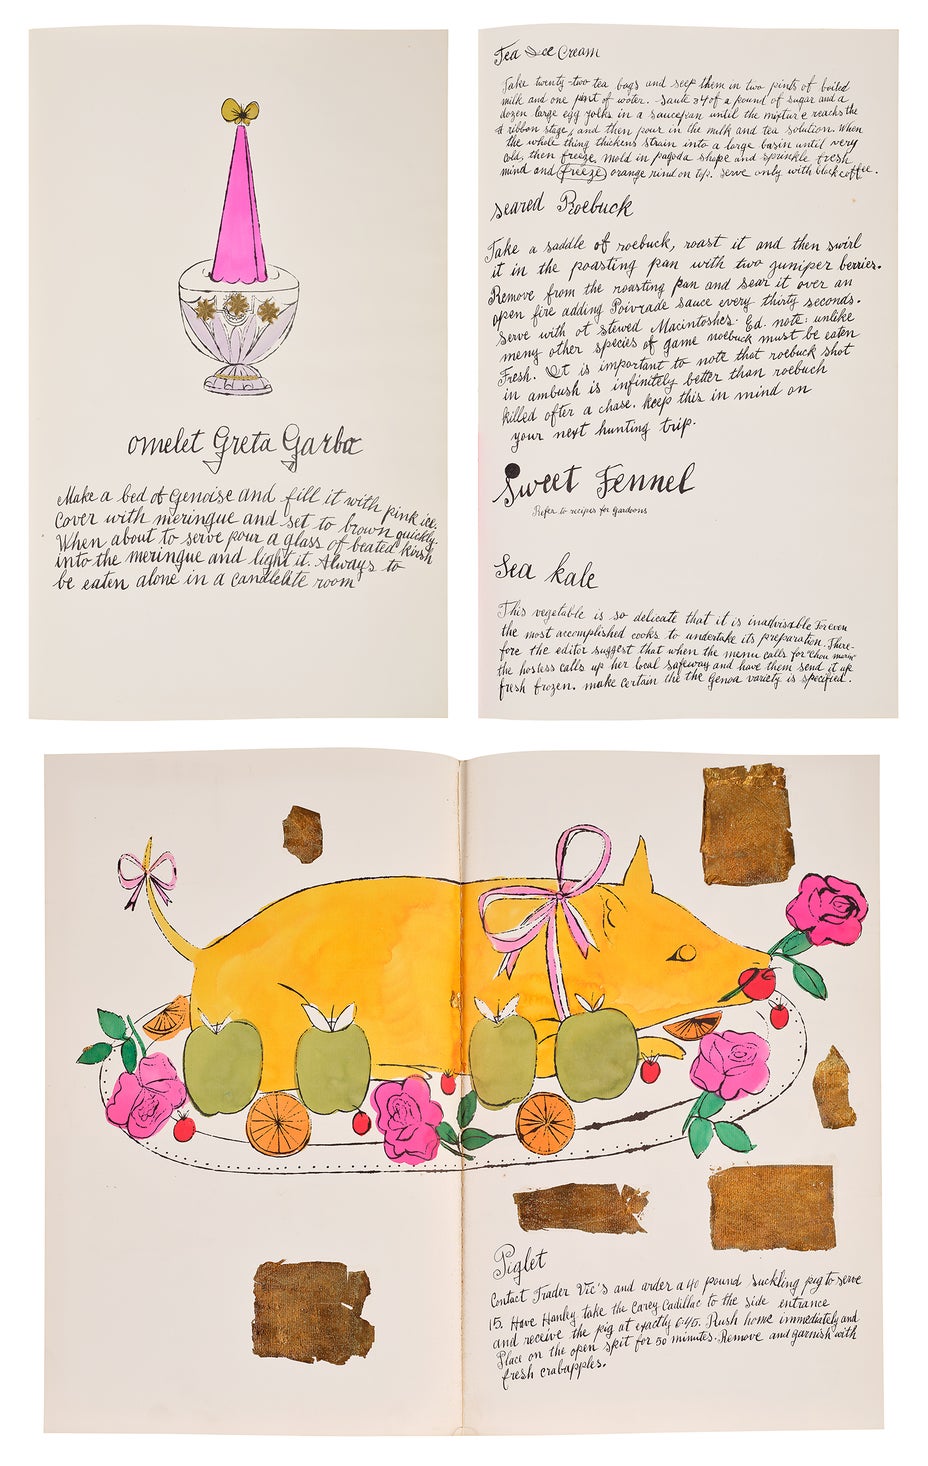 omelet Greta Garbo
Make a bed of Genoise and fill it with pink ice.
Cover with meringue and set to brown quickly.
When about to serve pour a glass of beated kirsh
into the meringue and light it. Always to
be eaten alone in a candlelite room
Tea Ice Cream
Take twenty-two tea bags and seep them in two pints of boiled
milk and one pint of water. Saute 3/4 of a pound of sugar and a
dozen large egg yolks in a saucepan until the mixture reaches the
ribbon stage, and then pour in the milk and tea solution. When
the whole thing thickens strain into a large basin until very
cold, then freeze. Mold in pagoda shape and sprinkle fresh
mind and freeze orange rind on top. Serve only with black coffee.
Seared Roebuck
Take a saddle of roebuck, roast it and then swirl
it in the poasting pan with two juniper berries.
Remove from the roasting pan and sear it over an
open fire adding Poivrade Sauce every thirty seconds.
Serve with ot stewed Macintoshes. Ed. note: unlike
meny other species of game roebuck must be eaten
Fresh. It is important to note that roebuck shot
in ambush is infinitely better than roebuch
killed after a chase. Keep this in mind on
your next hunting trip.
Sweet Fennel
Refer to recipes for Gardoons
Sea kale
This vegetable is so delicate that it is inadvisable for even
the most accomplished cooks to undertake its preparation. There-
fore the editor suggest that when the menu calls for "chou marin"
the hostess calls up her local Safeway and have them send it up
fresh frozen. make certain the the Genoa variety is specified.
Piglet
Contact Trader Vic's and order a 40 pound suckling pig to serve
15. Have Hanley take the Carey Cadillac to the side entrance
and receive the pig at exactly 6:45. Rush home immediately and
Place on the open spit for 50 minutes. Remove and garnish with
fresh crabapples.